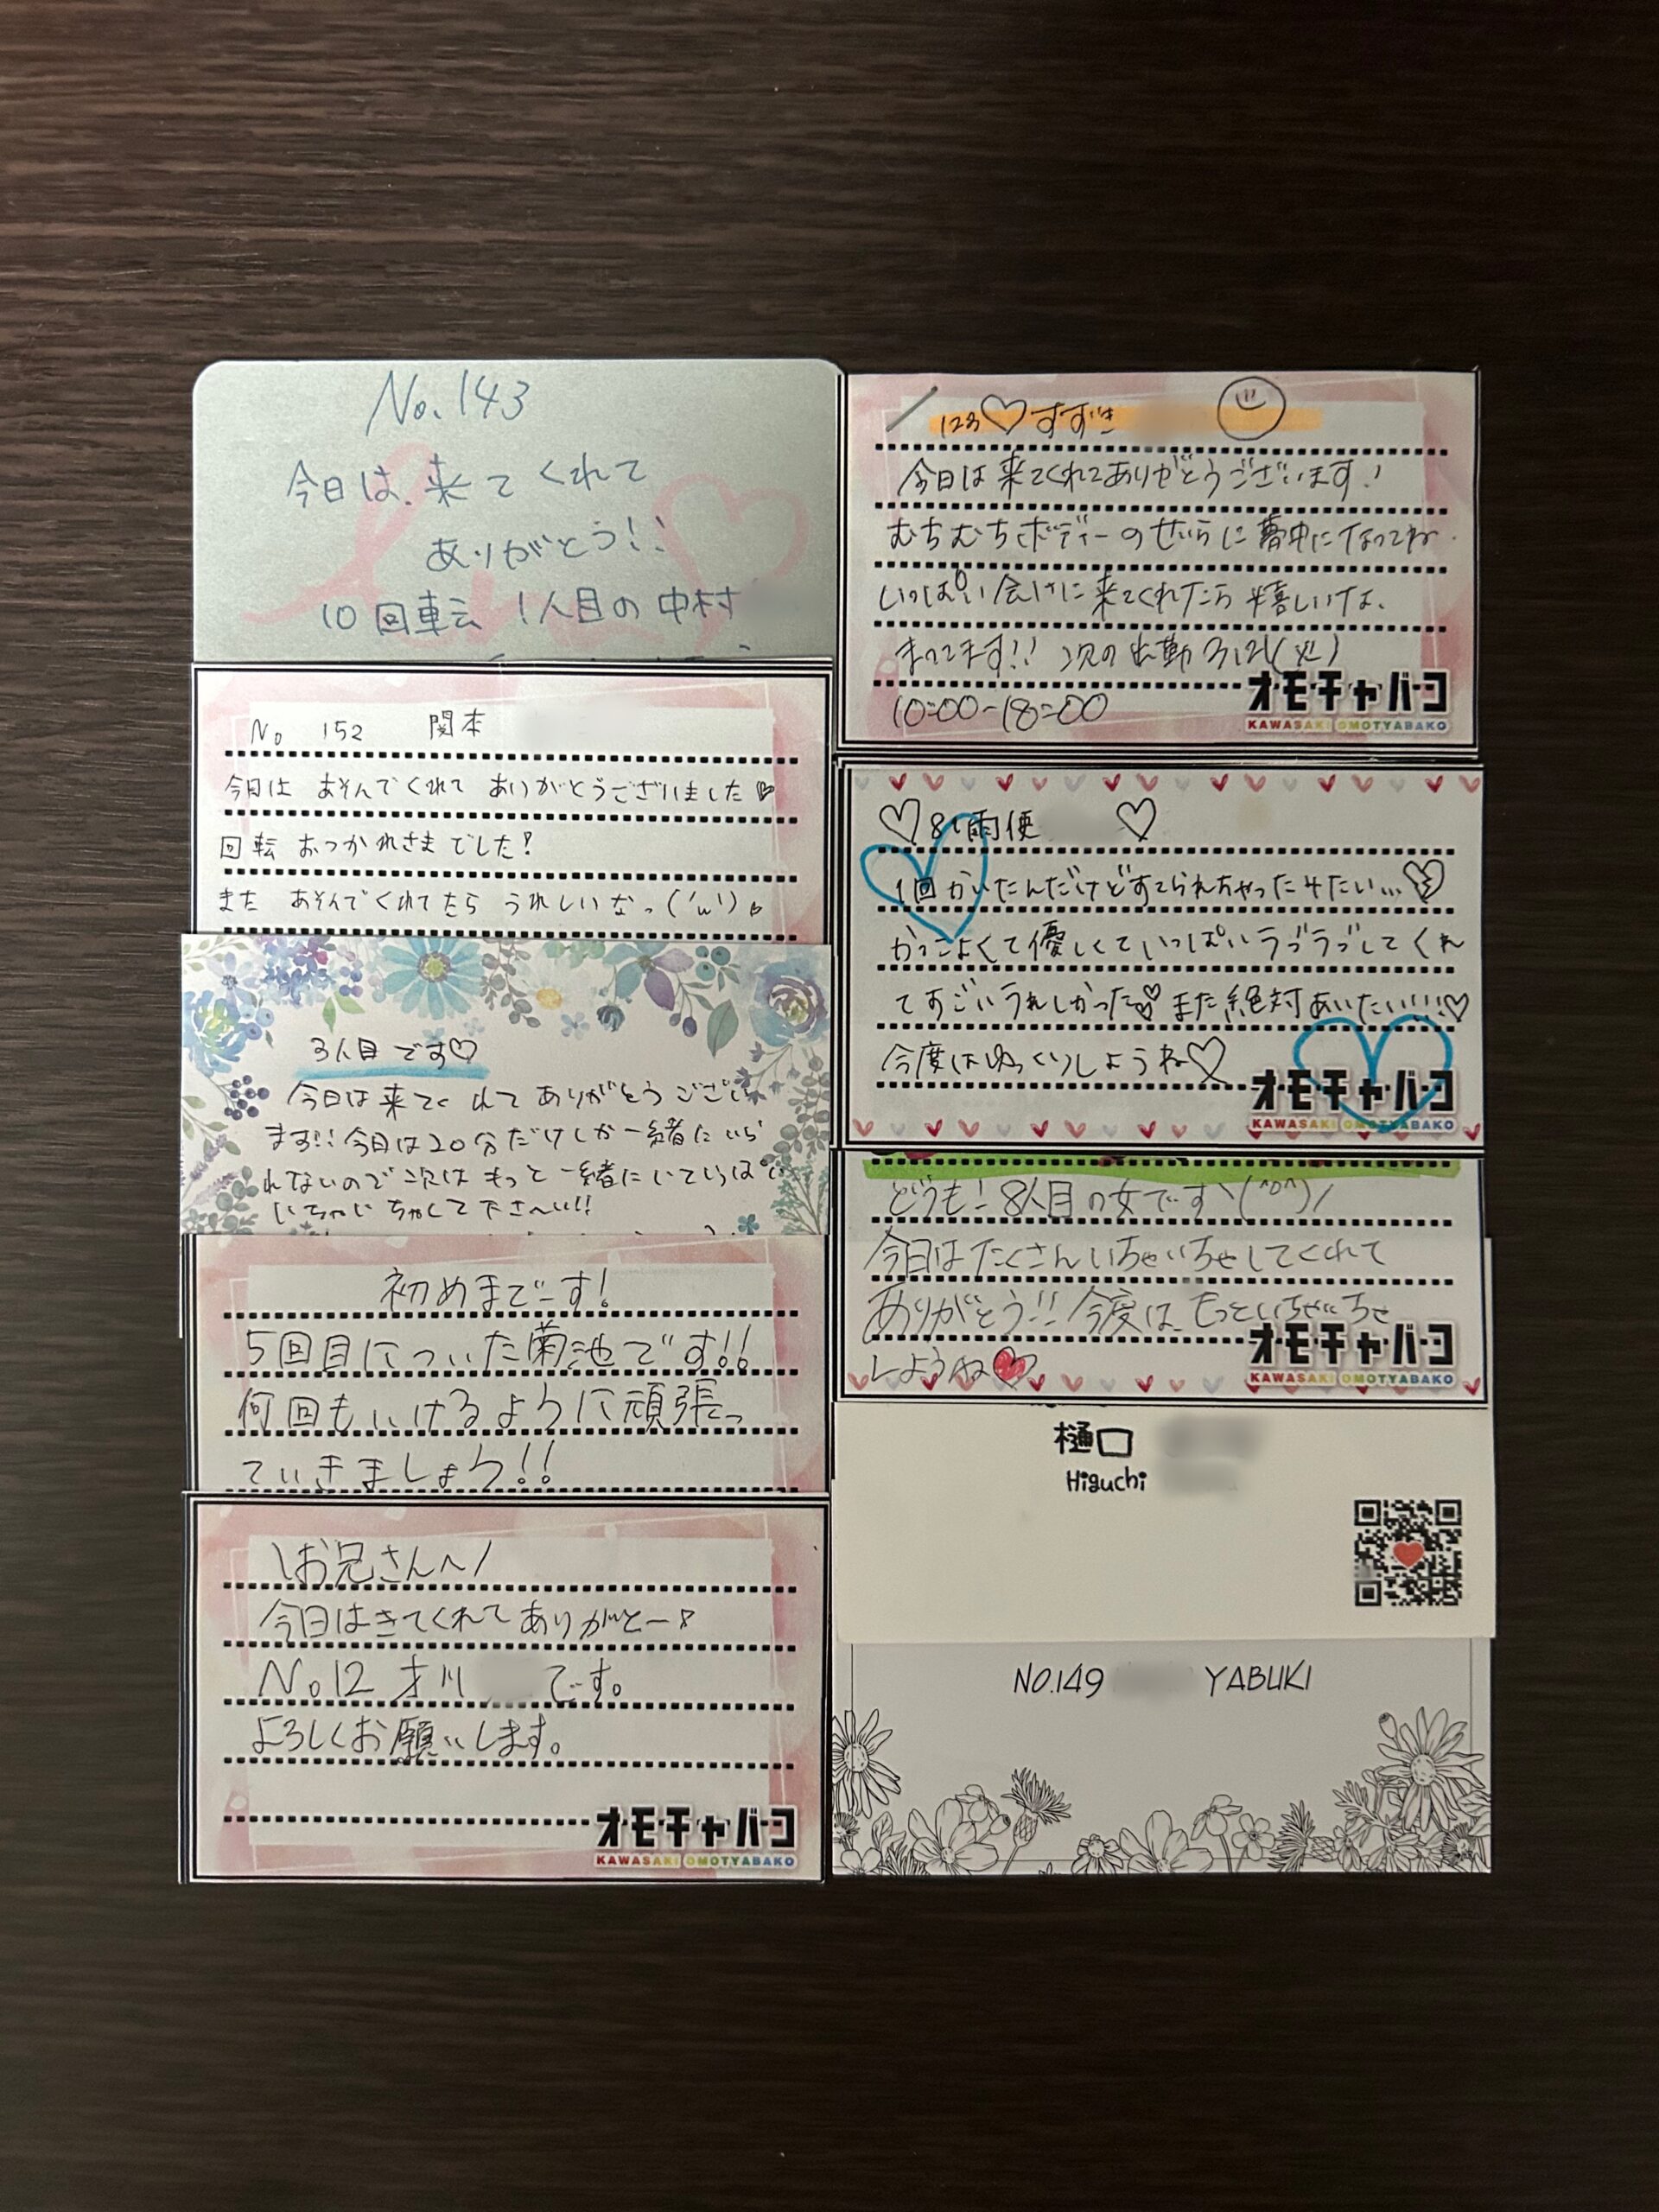 No.143
今日は、来てくれて
ありがとう!!
10回転 1人目の中村
No 152 関本
今日は あそんでくれて ありがとうございました♡
回転 おつかれさまでした!
また あそんでくれてたら うれしいなっ('ω')♡
3人目です♡
今日は来てくれてありがとうござい
ます!!今日は20分だけしか一緒にいら
れないので次はもっと一緒にいていっぱい
いちゃいちゃして下さ〜い!!
初めまでーす!
5回目についた菊池です!!
何回もいけるように頑張っ
ていきましょう!!
\お兄さんへ/
今日はきてくれてありがとー♪
No.12 才川 です。
よろしくお願いします。
オモチャバコ
KAWASAKI OMOTYABAKO
123♡すずき
今日は来てくれてありがとうございます!
むちむちボディーのせいらに夢中になってね
いっぱい会いに来てくれたら嬉しいな、
まってます!! 次の出勤 3/21(火)
10:00-18:00
オモチャバコ
KAWASAKI OMOTYABAKO
♡81雨便 ♡
1回かいたんだけどすてられちゃったみたい…💔
かっこよくて優しくていっぱいラブラブしてくれ
てすごいうれしかった♡また絶対あいたい!!!♡
今度はゆっくりしようね♡
オモチャバコ
KAWASAKI OMOTYABAKO
どうも!8人目の女です\(^o^)/
今日はたくさんいちゃいちゃしてくれて
ありがとう!!今度は、もっといちゃいちゃ
しようね♥
オモチャバコ
KAWASAKI OMOTYABAKO
樋口
Higuchi
NO.149 YABUKI